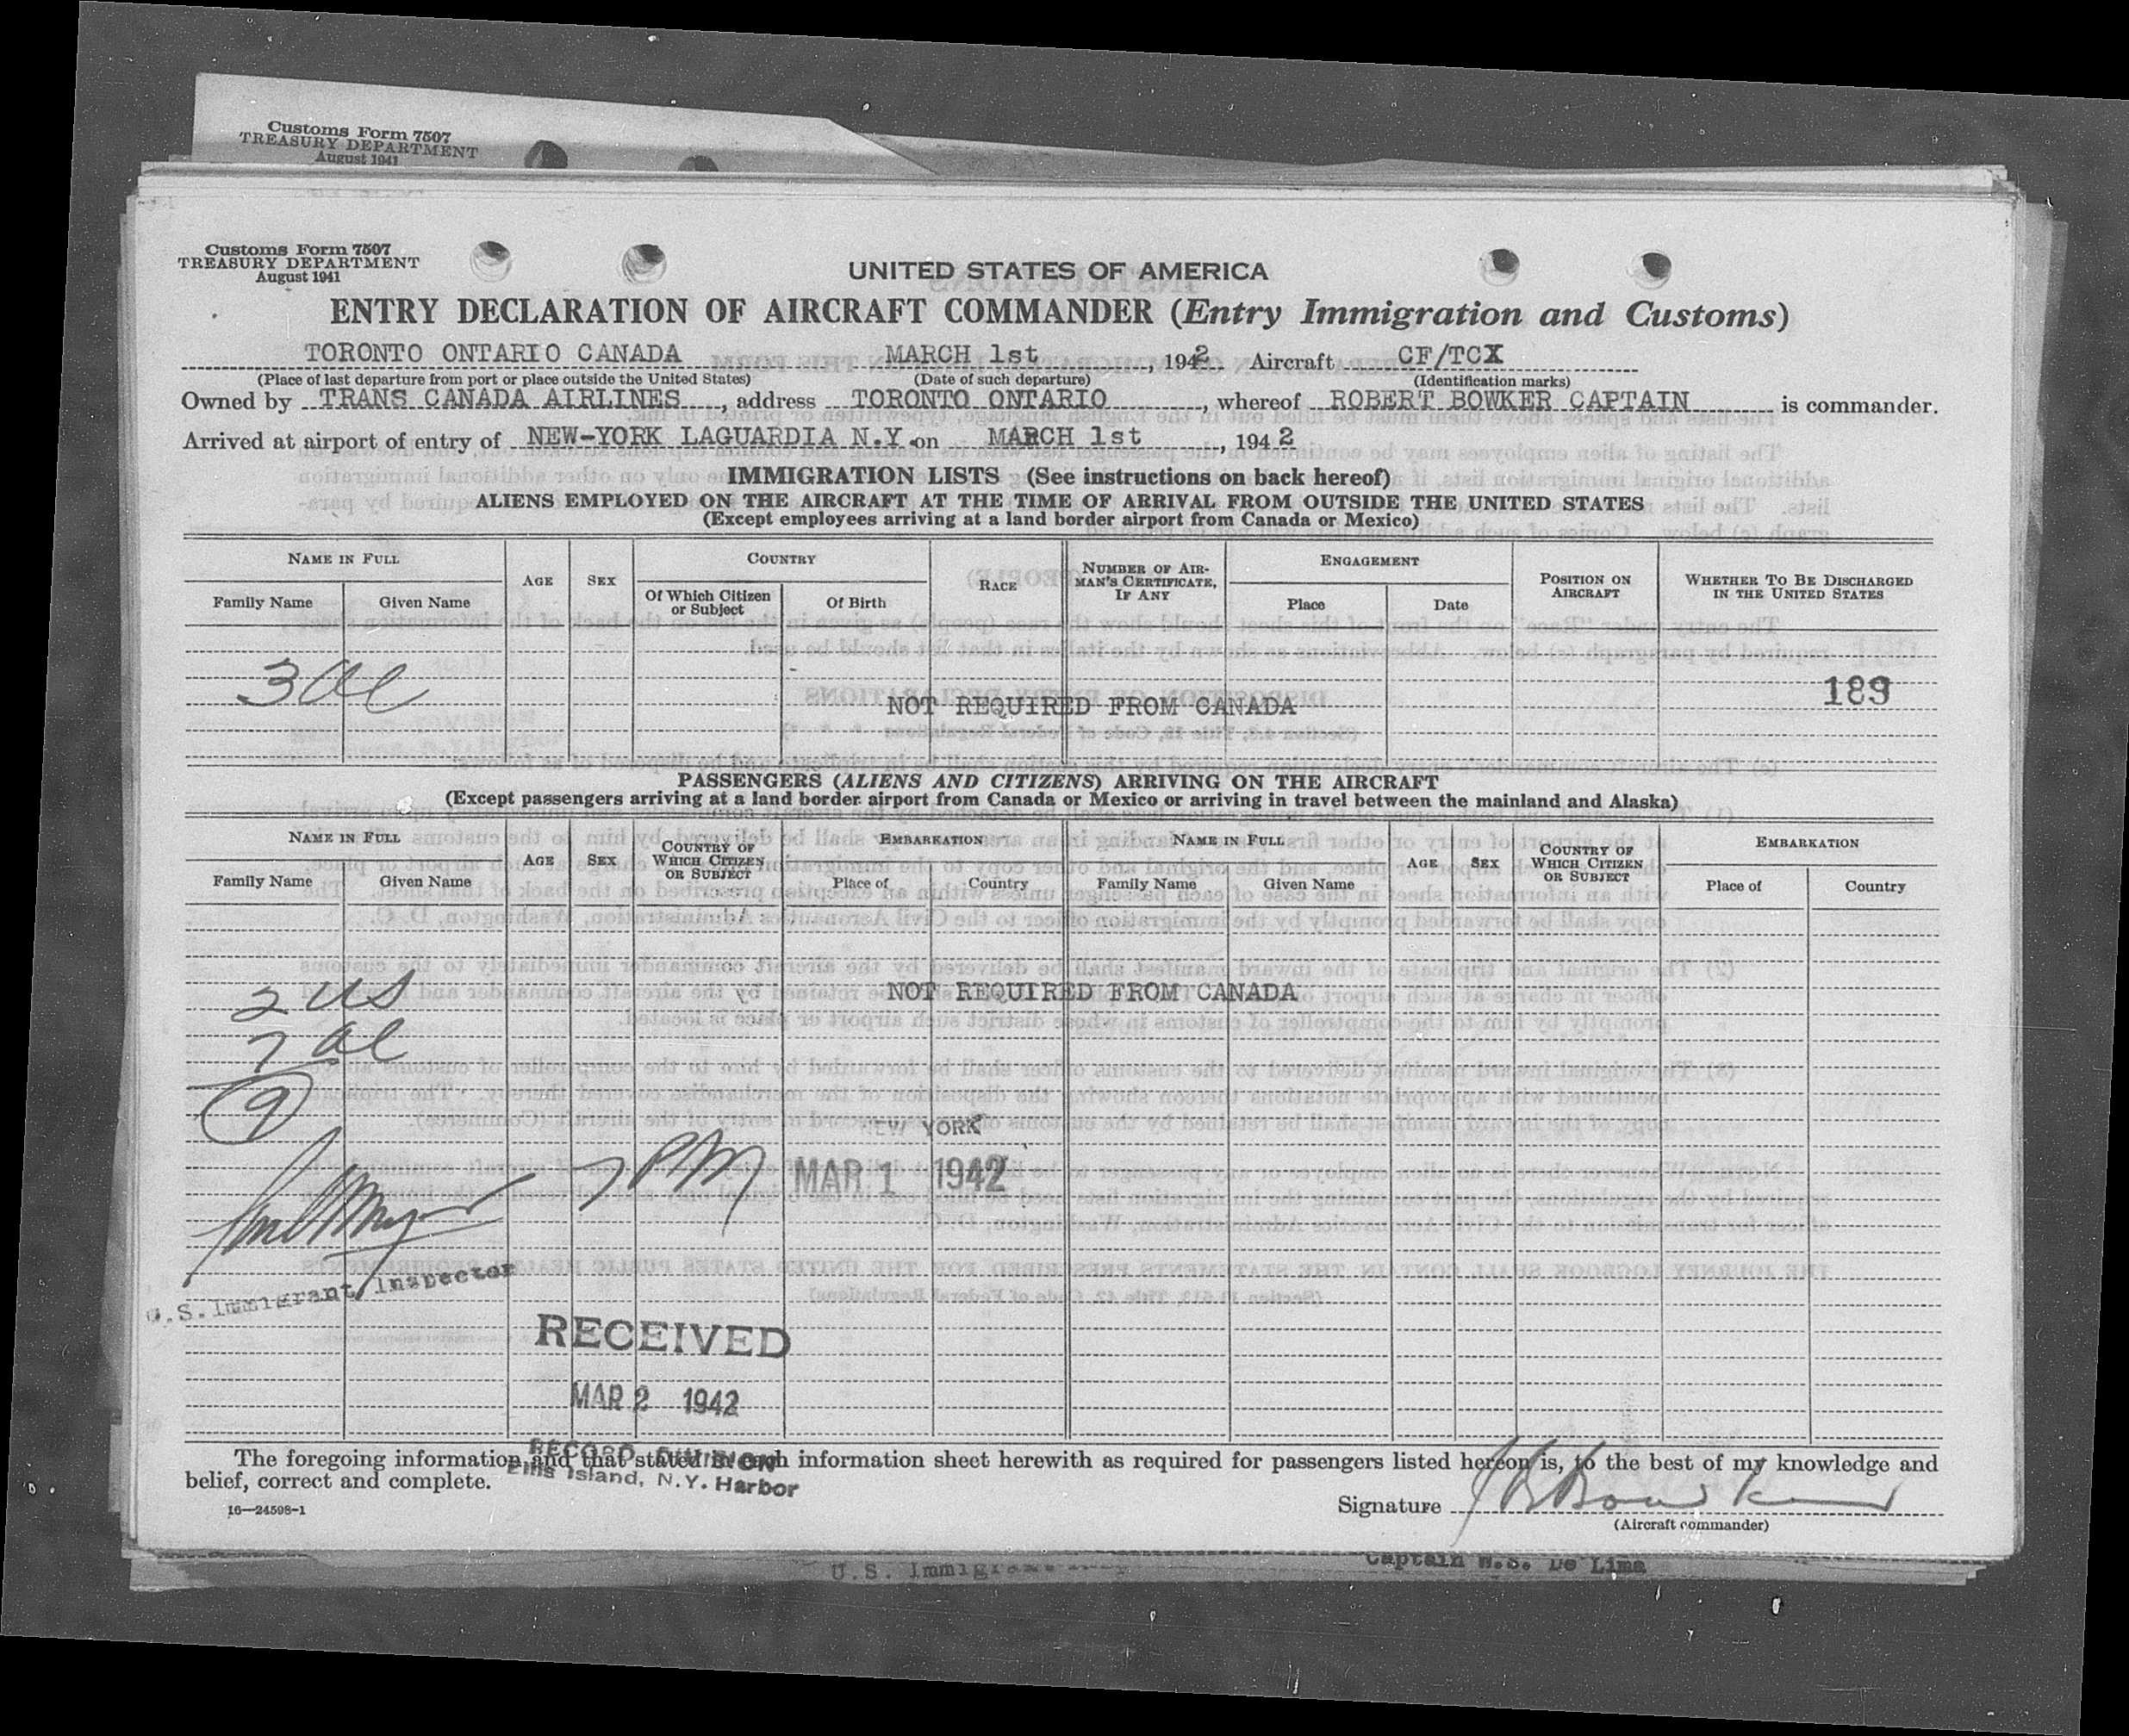 Customs Form 7507
TREASURY DEPARTMENT
August 1941
Customs Form 7507
TREASURY DEPARTMENT
August 1941
UNITED STATES OF AMERICA
ENTRY DECLARATION OF AIRCRAFT COMMANDER (Entry Immigration and Customs)
TORONTO ONTARIO CANADA MARCH 1st, 1942 Aircraft CF/TCX
(Place of last departure from port or place outside the United States) (Date of such departure) (Identification marks)
Owned by TRANS CANADA AIRLINES, address TORONTO ONTARIO, whereof ROBERT BOWKER CAPTAIN is commander.
Arrived at airport of entry of NEW-YORK LAGUARDIA N.Y. on MARCH 1st, 1942
IMMIGRATION LISTS (See instructions on back hereof)
ALIENS EMPLOYED ON THE AIRCRAFT AT THE TIME OF ARRIVAL FROM OUTSIDE THE UNITED STATES
(Except employees arriving at a land border airport from Canada or Mexico)
NAME IN FULL AGE SEX COUNTRY RACE NUMBER OF AIRMAN'S CERTIFICATE, IF ANY ENGAGEMENT POSITION ON AIRCRAFT WHETHER TO BE DISCHARGED IN THE UNITED STATES
Family Name Given Name Of Which Citizen or Subject Of Birth Place Date
3 al
189
NOT REQUIRED FROM CANADA
PASSENGERS (ALIENS AND CITIZENS) ARRIVING ON THE AIRCRAFT
(Except passengers arriving at a land border airport from Canada or Mexico or arriving in travel between the mainland and Alaska)
NAME IN FULL AGE SEX COUNTRY OF WHICH CITIZEN OR SUBJECT EMBARKATION NAME IN FULL AGE SEX COUNTRY OF WHICH CITIZEN OR SUBJECT EMBARKATION
Family Name Given Name Place of Country Family Name Given Name Place of Country
2 US
NOT REQUIRED FROM CANADA
7 al
9
NEW YORK
7 PM MAR 1 1942
U.S. Immigrant Inspector
RECEIVED
MAR 2 1942
RECORD DIVISION
Ellis Island, N.Y. Harbor
The foregoing information and that stated in each information sheet herewith as required for passengers listed hereon is, to the best of my knowledge and
belief, correct and complete.
Signature R Bowker
16—24598-1
(Aircraft commander)
U.S. Immigrant
Captain W.S. De Lima